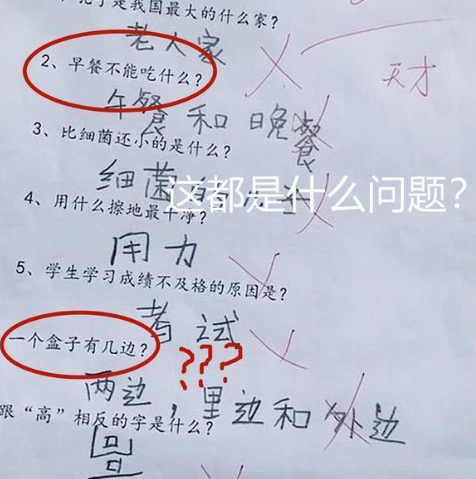 孔子是我国最大的什么家?
老人家
2、早餐不能吃什么?
午餐和晚餐
天才
3、比细菌还小的是什么?
细菌
这都是什么问题?
4、用什么擦地最干净?
用力
5、学生学习成绩不及格的原因是?
考试
一个盒子有几边?
???
两边,里边和外边
跟“高”相反的字是什么?